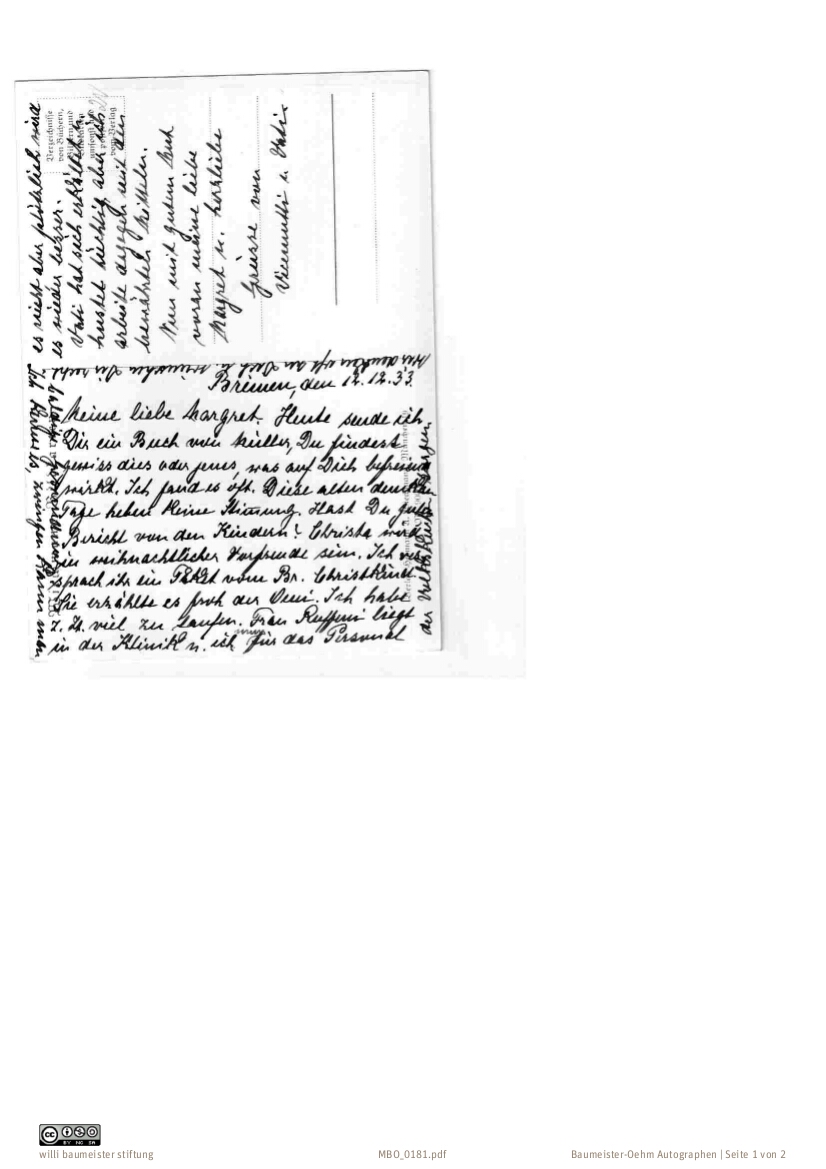 Bremen, den 12.12.33.
Meine liebe Margret. Heute sende ich
Dir ein Buch von Müller, Du findest
gewiss dies oder jenes, was auf Dich befreiend
wirkt. Ich fand es oft. Diese alten dunklen
Tage heben keine Stimmung. Hast Du guten
Bericht von den Kindern? Christa wird
in weihnachtlicher Vorfreude sein. Ich ver-
sprach ihr ein Paket vom Br. Christkind.
Sie erzählte es froh der Omi. Ich habe
z. Zt. viel zu laufen. Frau liegt
in der Klinik u. ich muss für das Personal
der
Ich zwingen kann man
es nicht aber plötzlich wird
es wieder besser.
Vati hat sich erkältet
hustet tüchtig aber ich
arbeite dagegen mit den
bewährten Mitteln.
Nun mit gutem
voran meine liebe
Margret u. herzliche
Grüsse von
u. Vati
wir denken oft an Dich u. wünschen Dir recht
Verzeichnisse
von Büchern,
Bildern und
umsonst
vom Verlag
willi baumeister stiftung
MBO_0181.pdf
Baumeister-Oehm Autographen | Seite 1 von 2
cc BY NC SA